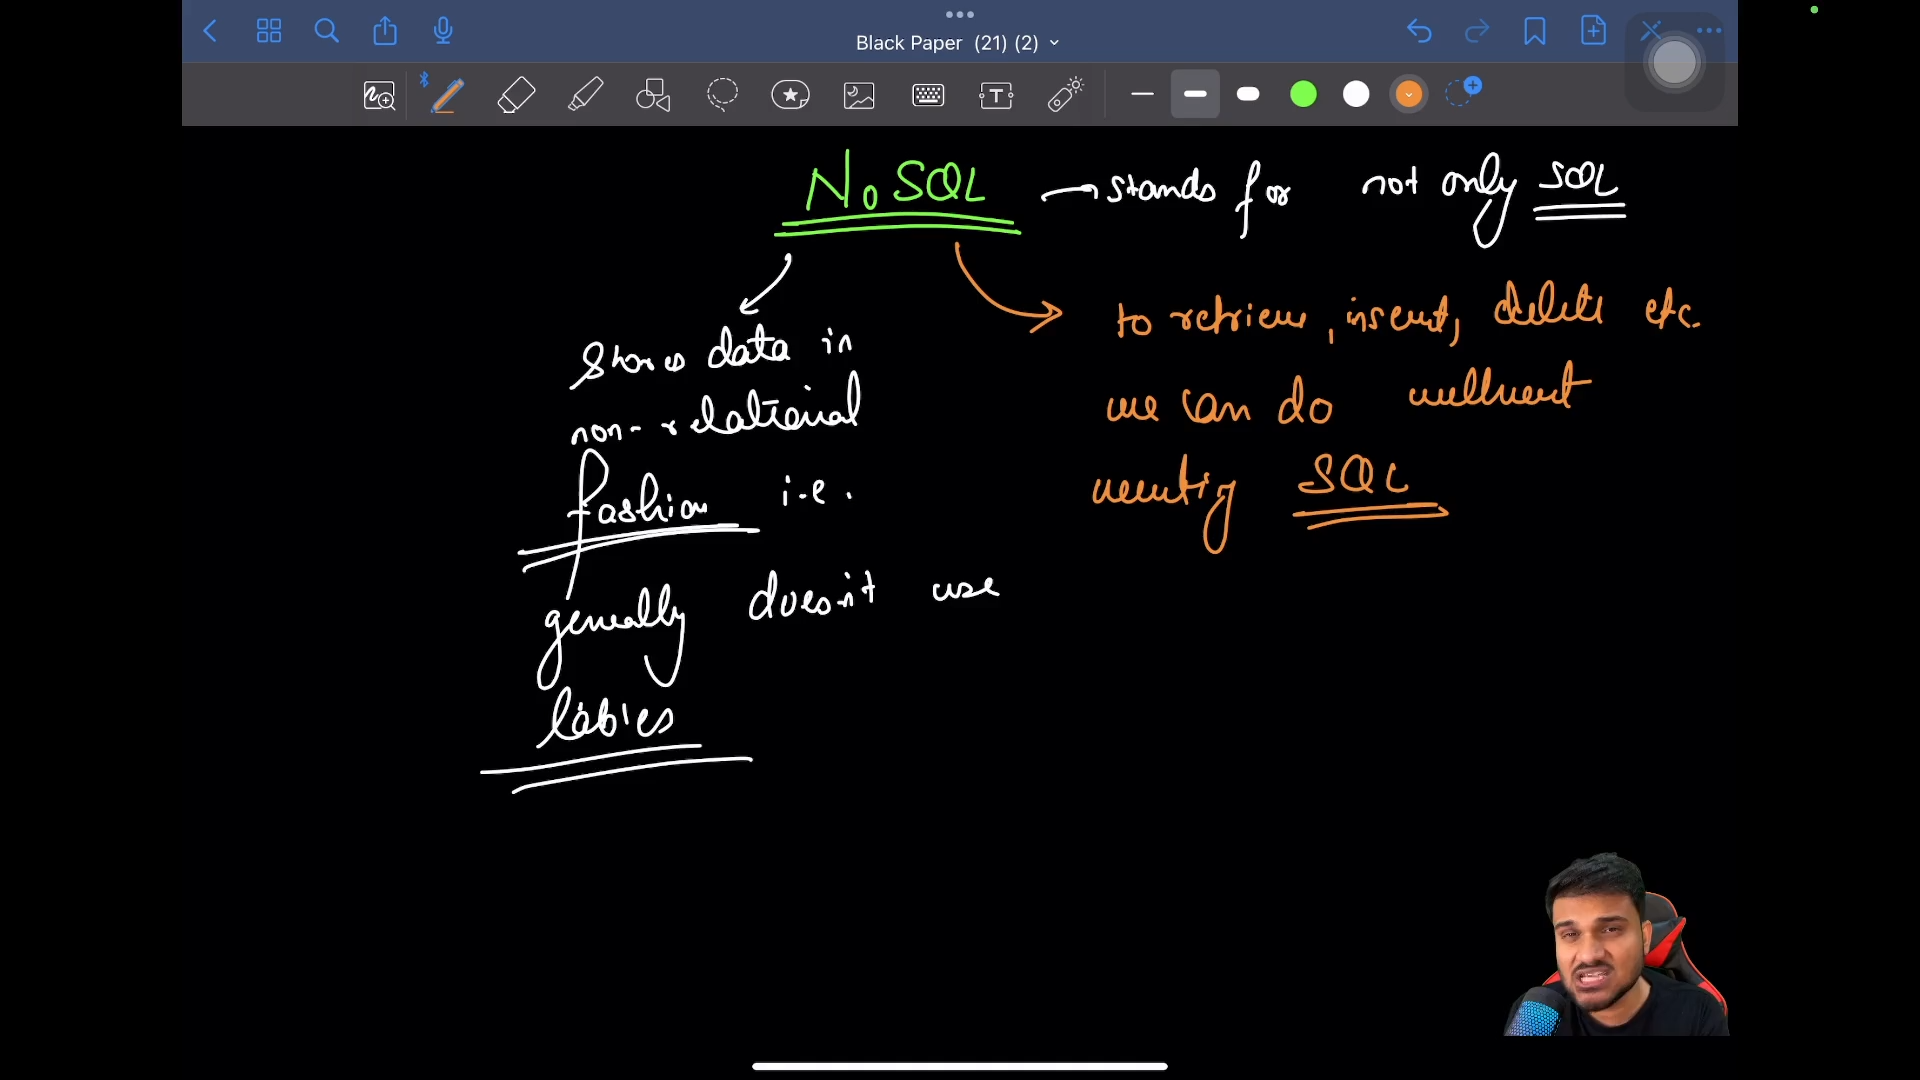 Black Paper (21) (2)
No SQL — stands for not only SQL
Stores data in
non-relational
fashion i.e.
generally doesn't use
tables
to retrieve, insert, delete etc.
we can do without
writing SQL